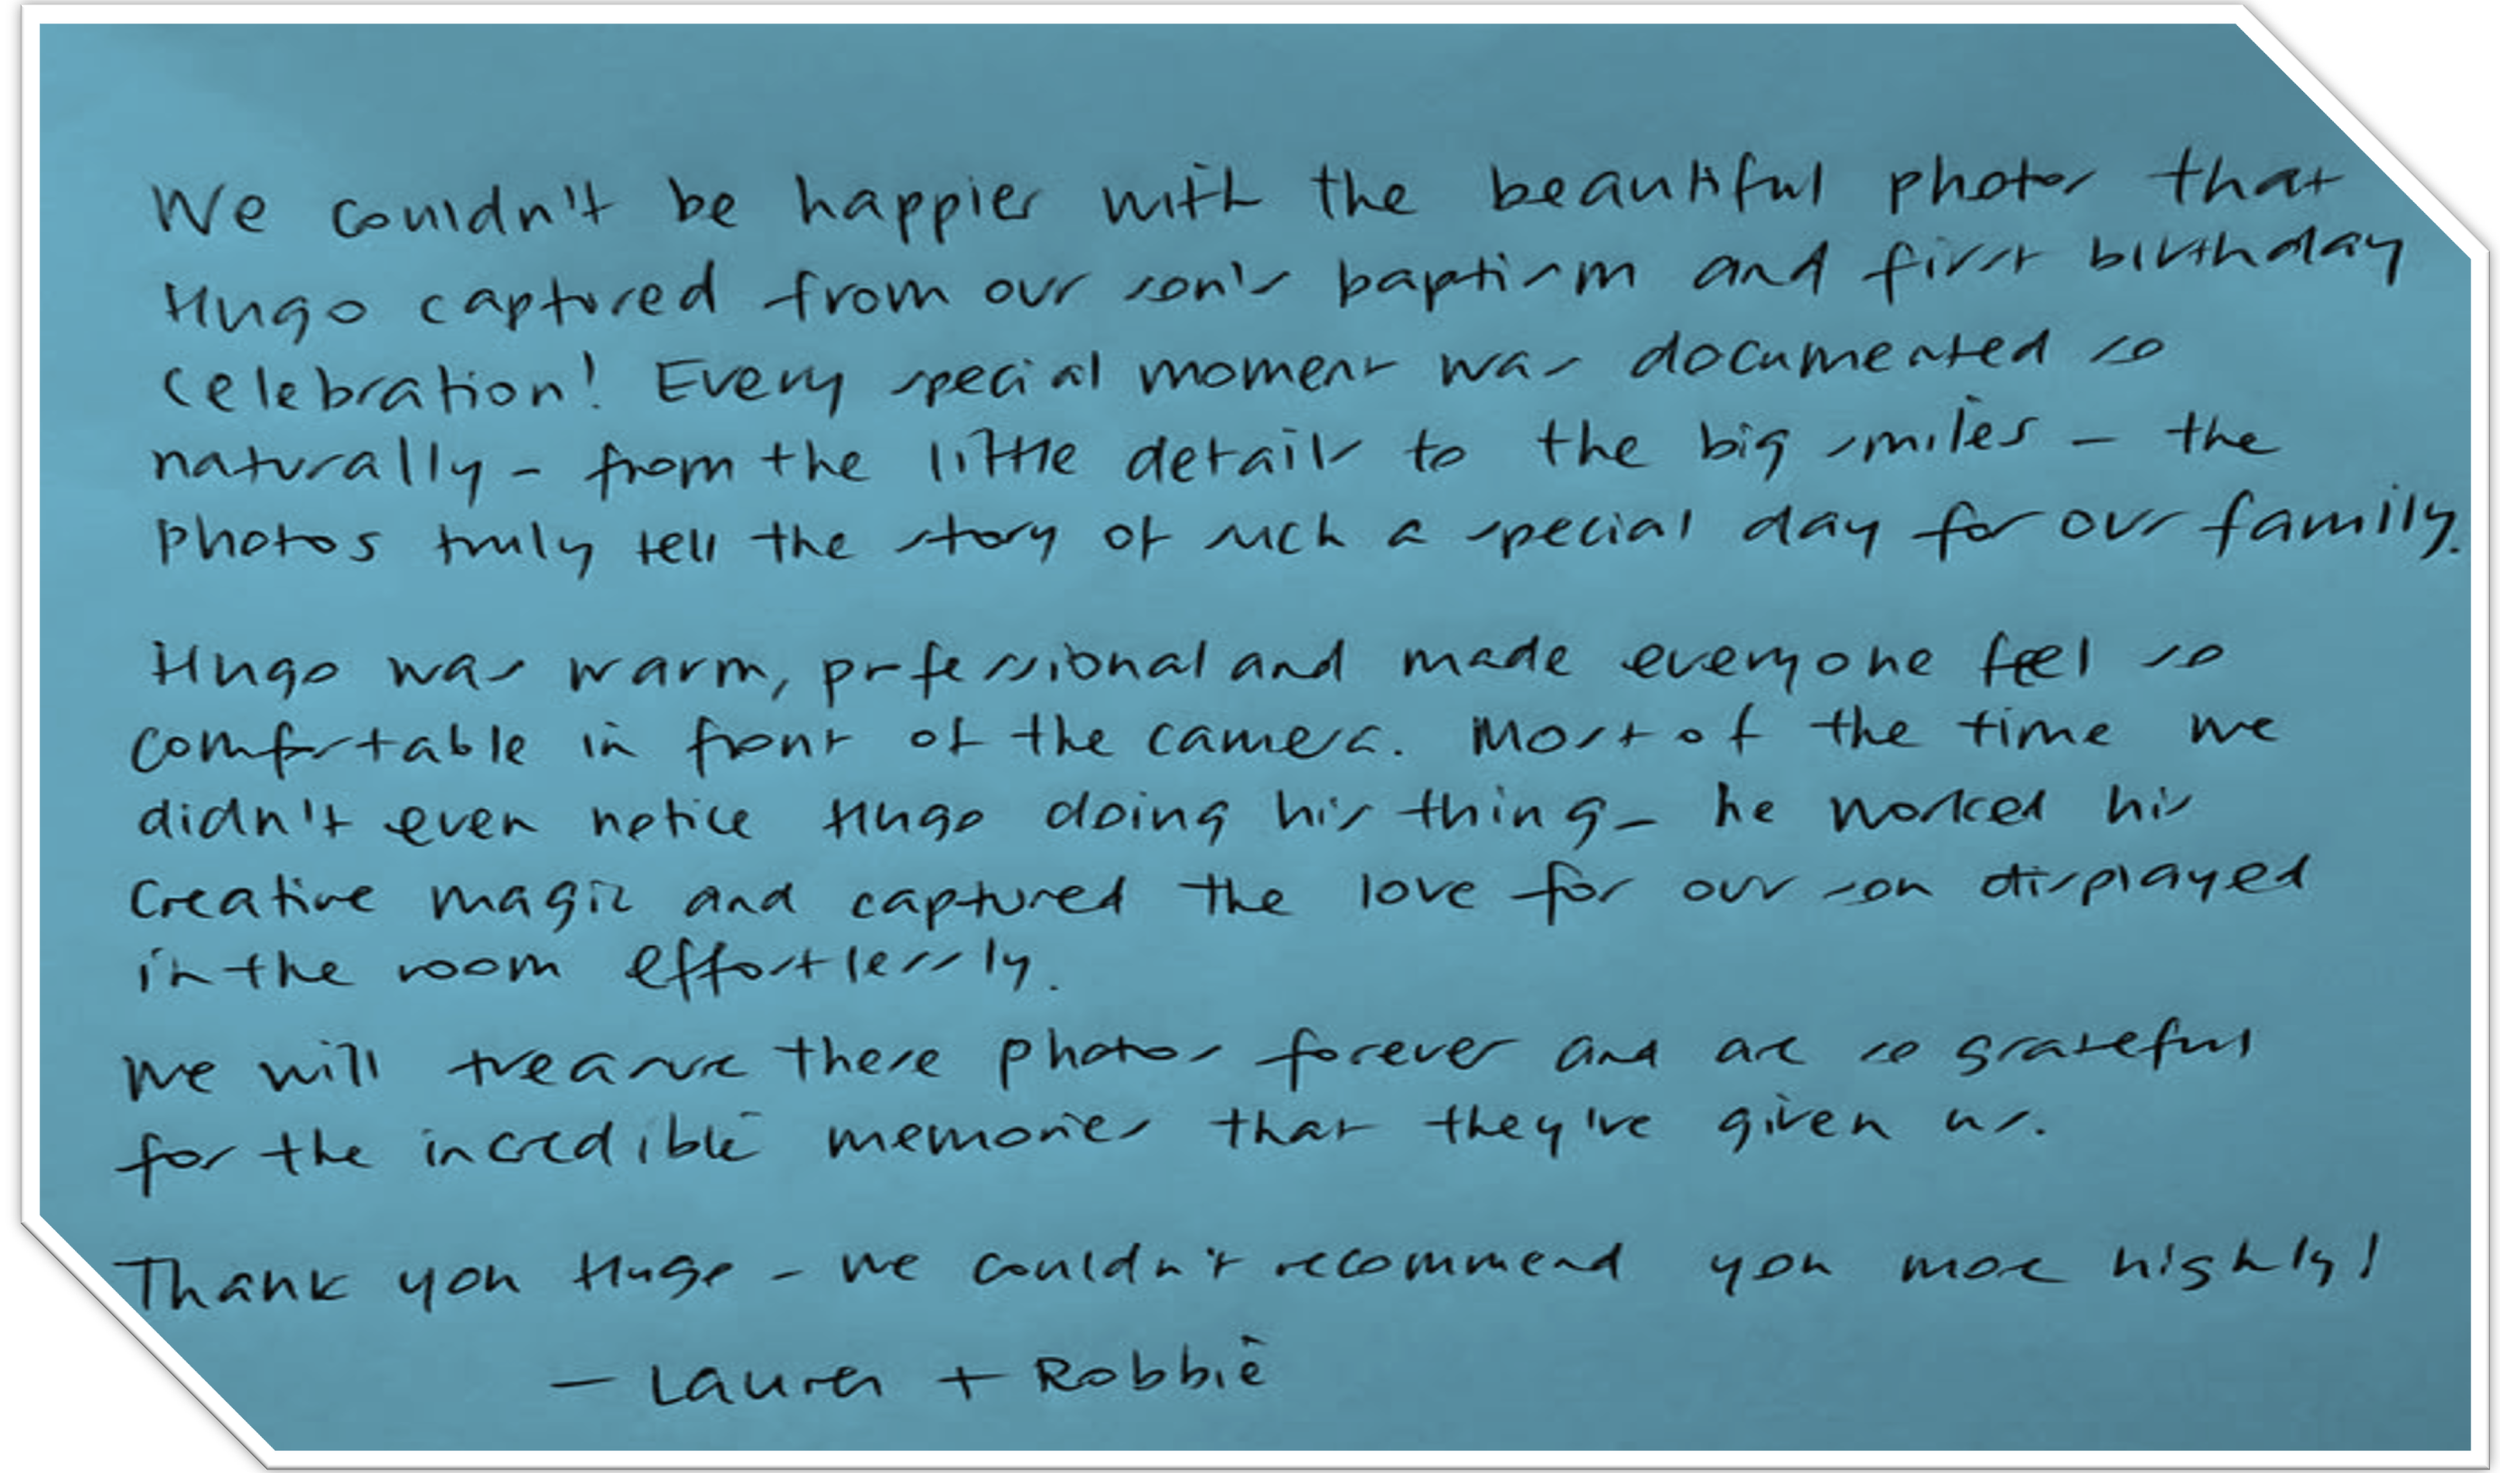 We couldn't be happier with the beautiful photos that
Hugo captured from our son's baptism and first birthday
celebration! Every special moment was documented so
naturally - from the little details to the big smiles - the
photos truly tell the story of such a special day for our family.
Hugo was warm, professional and made everyone feel so
comfortable in front of the camera. Most of the time we
didn't even notice Hugo doing his thing - he worked his
creative magic and captured the love for our son displayed
in the room effortlessly.
We will treasure these photos forever and are so grateful
for the incredible memories that they've given us.
Thank you Hugo - we couldn't recommend you more highly!
- Lauren + Robbie